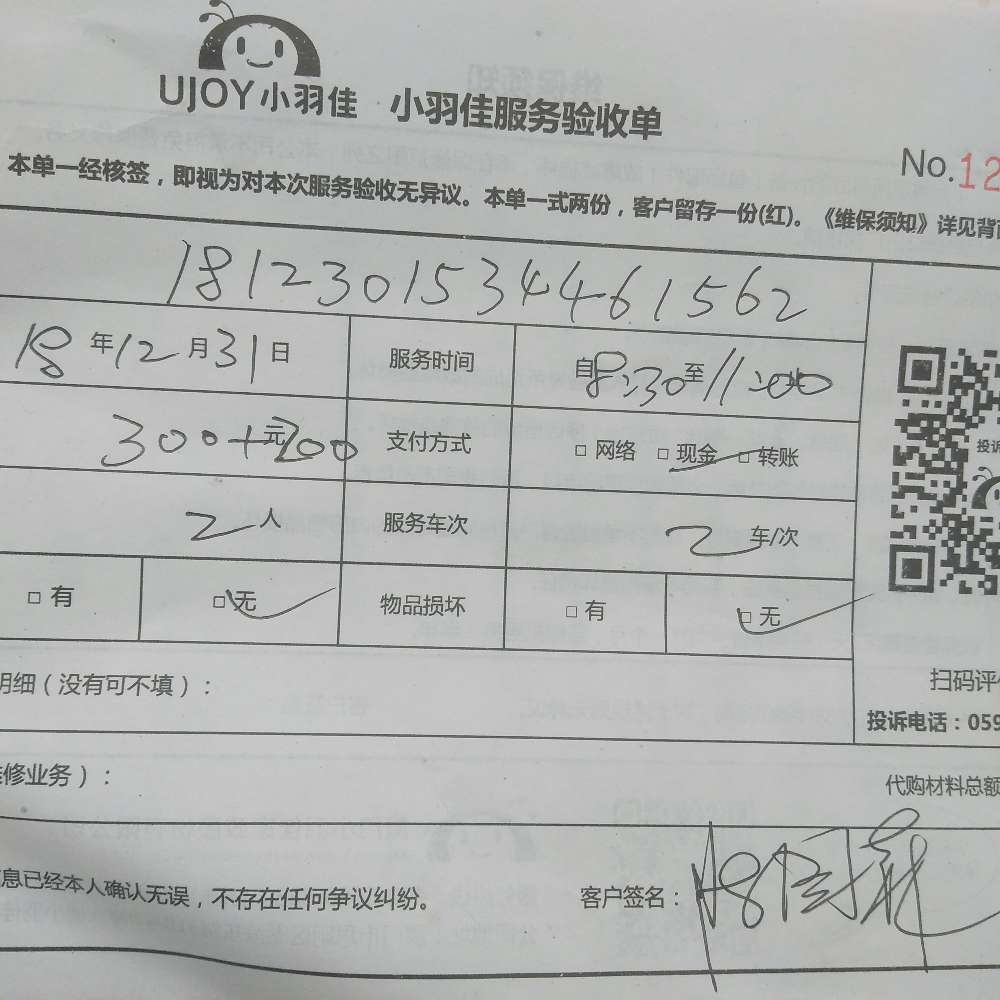 UJOY小羽佳 小羽佳服务验收单
No.12
本单一经核签，即视为对本次服务验收无异议。本单一式两份，客户留存一份(红)。《维保须知》详见背
1812301534461562
18年12月31日 服务时间 自8:30至11:00
300+200元 支付方式 □ 网络 □ 现金 □ 转账
投诉
2人 服务车次 2车/次
□ 有 □ 无 物品损坏 □ 有 □ 无
明细（没有可不填）：
扫码评
投诉电话：059
修业务）：
代购材料总额
息已经本人确认无误，不存在任何争议纠纷。 客户签名：